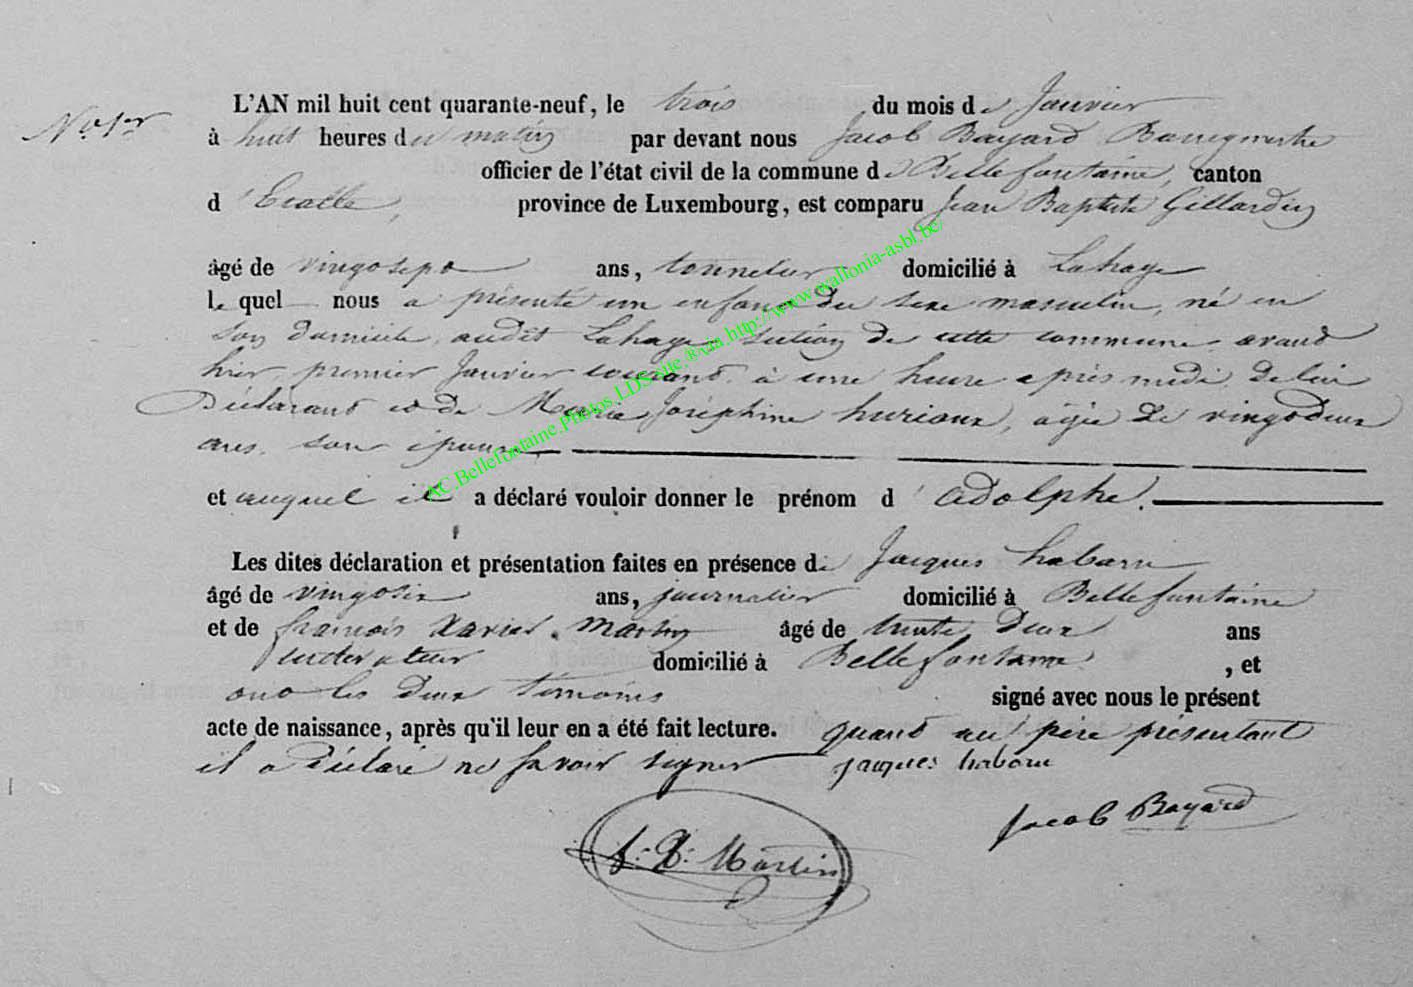 No 1er
L'AN mil huit cent quarante-neuf, le trois du mois de Janvier
à huit heures du matin par devant nous Jacob Bayard Bourgmestre
officier de l'état civil de la commune de Bellefontaine, canton
d'Etalle, province de Luxembourg, est comparu Jean Baptiste Gillardin
âgé de vingt sept ans, tonnelier domicilié à Lahage
lequel nous a présenté un enfant du sexe masculin, né en
son domicile, audit Lahage section de cette commune avant
hier premier Janvier courant à une heure après midi, de lui
Déclarant et de Marie Joséphine huriaux, agée de vingt deux
ans, son épouse
et auquel il a déclaré vouloir donner le prénom d'Adolphe.
Les dites déclaration et présentation faites en présence de Jacques
âgé de vingt six ans, journalier domicilié à Bellefontaine
et de françois Xavier Martin âgé de trente Deux ans
domicilié à Bellefontaine, et
ont les deux témoins signé avec nous le présent
acte de naissance, après qu'il leur en a été fait lecture. quant au père présentant
il a Déclaré ne savoir signer jacques
Jacob Bayard
f: X: Martin
AC.Bellefontaine.Photos.LDS.site.®.via.http://www.wallonia-asbl.be/